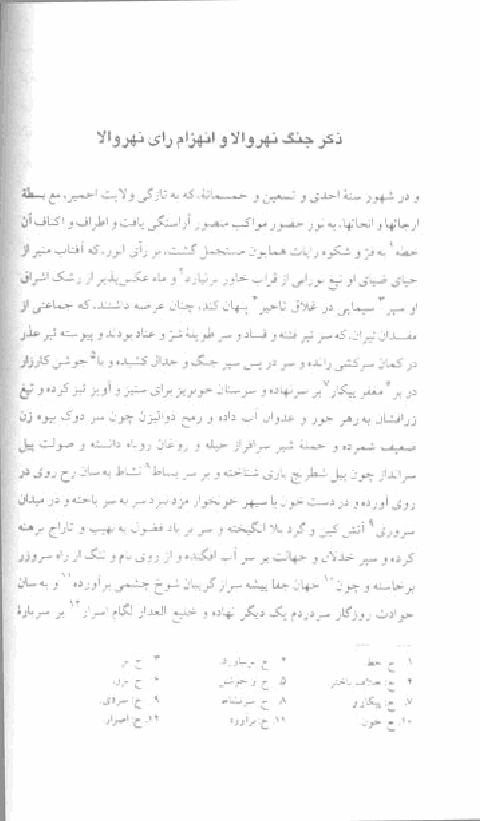 ذکر جنگ نهروالا و انهزام رای نهروالا
و در شهور سنهٔ احدی و تسعین و خمسمائة، که به تازگی ولایت اجمیر، مع بسطة
ارجائها و انحائها، به نور حضور مواکب منصور آراستگی یافت و اطراف و اکناف آن
خطه۱ به فر و شکوه رایات همایون گشت، بر رأی انور، که آفتاب منیر از
ضیای او تیغ نورانی از قراب خاور برنیارد۲ و ماه عکس‌پذیر از رشک اشراق
او سپر۳ سیمایی در غلاف تأخیر۴ پنهان کند، چنان عرضه داشتند، که جماعتی از
که سر تیر فتنه و فساد و سر طویلهٔ شر و عناد بودند و پیوسته تیر غدر
در کمان سرکشی رانده و سر در پس سپر جنگ و جدال کشیده و با۵ جوشن کارزار
در بر و۶ مغفر پیکار۷ بر سر نهاده و خون‌ریز برای ستیز و آویز تیز کرده و تیغ
زرافشان به زهر جور و عدوان آب داده و رمح چون سر کودک بیوه زن
ضعیف شمرده و حملهٔ شیر سرافراز حیله و روغان روباه دانسته و صولت پیل
سرانداز چون پیل شطرنج بازی شناخته و بر سر بساط۸ نشاط به سان رخ روی در
روی آورده و در دست خون با سپهر خونخوار نرد سر به سر باخته و در میدان
سروری۹ آتش کین و گرد بلا انگیخته و سر بر باد فضول به و تاراج برهنه
کرده و سپر خذلان و جهالت بر سر آب افکنده و از روی نام و ننگ از راه
برخاسته و چون۱۰ جهان جفا پیشه سر از گریبان شوخ چشمی برآورده۱۱ و به سان
حوادث روزگار یک دیگر نهاده و خلیع العذار لگام اسرار۱۲ بر سربارهٔ
۱. ح: خط ۲. ح: ۳. ح: بر
۴. ح: خلاف ۵. ح: ۶. ح:
۷. ح: پیکار و ۸. ح: ۹. ح:
۱۰. ح: خون ۱۱. ح: ۱۲. ح: اصرار.